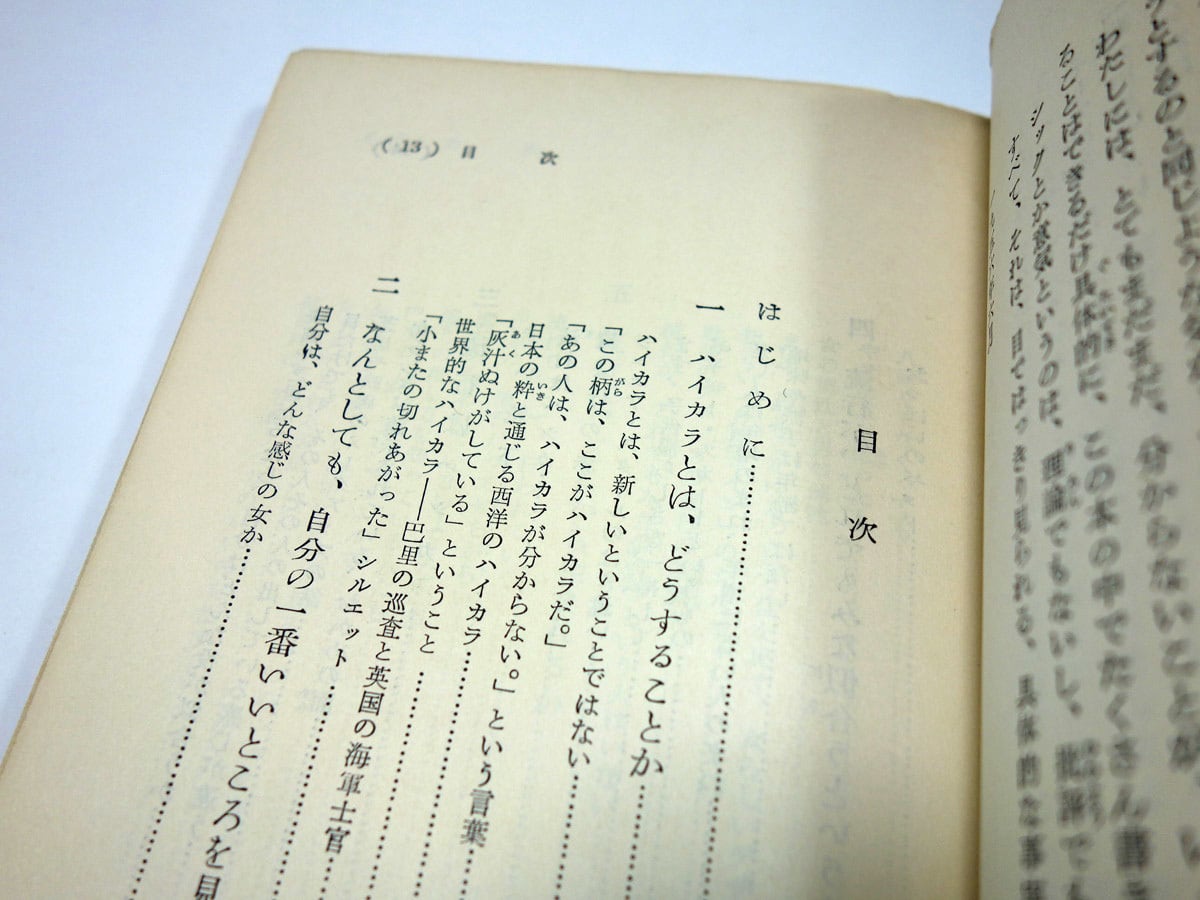 とするのと同じような
わたしには、とてもまだまだ、分からないことが
ることはできるだけ具体的に、この本の中でたくさん書き
シックとか意気というのは、理論でもないし、批評でも
すべて、それは、目ではっきり見られる、具体的な事
(13) 目 次
目 次
はじめに……………
一 ハイカラとは、どうすることか……………
ハイカラとは、新しいということではない……………
「この柄は、ここがハイカラだ。」
「あの人は、ハイカラが分からない。」という言葉
日本の粋と通じる西洋のハイカラ……………
「灰汁ぬけがしている」ということ……………
世界的なハイカラ――巴里の巡査と英国の海軍士官
「小またの切れあがった」シルエット……………
二 なんとしても、自分の一番いいところを見
自分は、どんな感じの女か……………